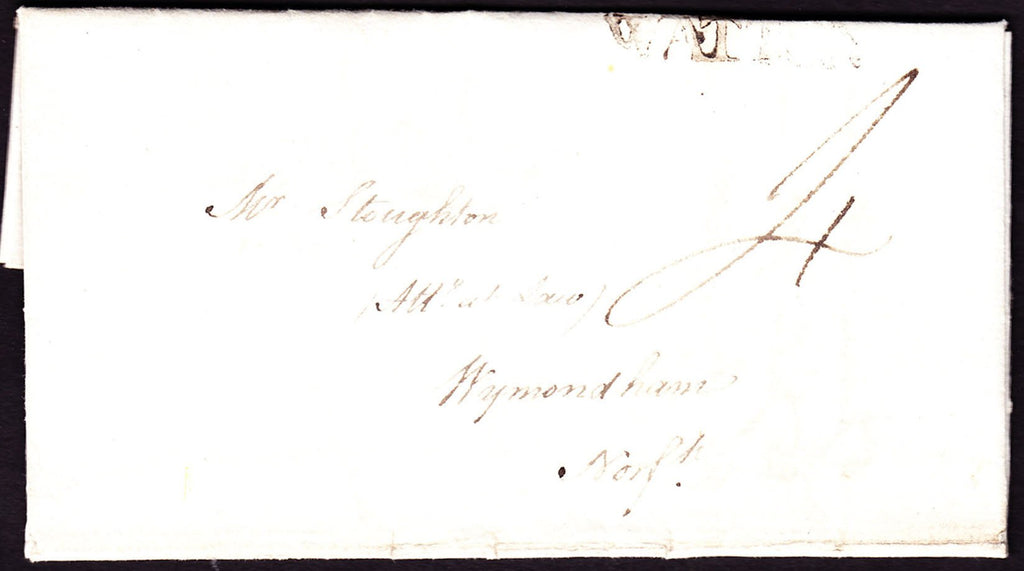 Mr Stoughton
(Atty. at Law)
Wymondham
Norfk.
4